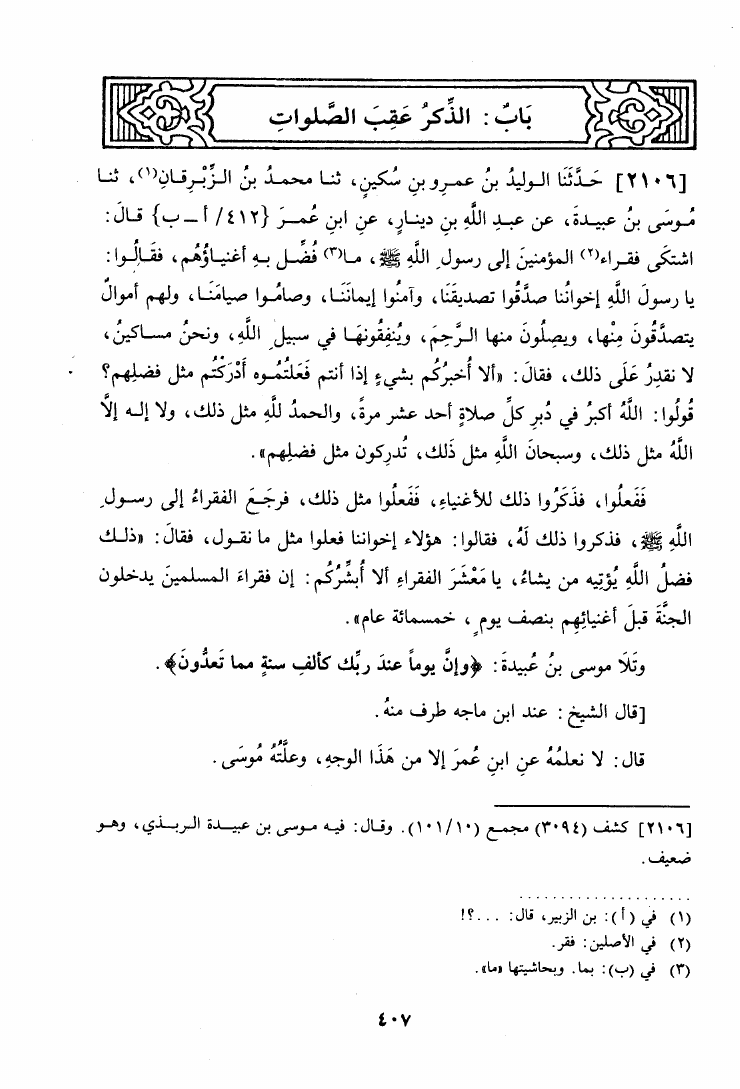 بَابُ : الذِّكرُ عَقِبَ الصَّلواتِ
[٢١٠٦] حَدَّثَنَا الوليدُ بنُ عمرِو بنِ سُكينٍ، ثنا محمدُ بنُ الزِّبْرِقانِ(١)، ثنا
مُوسَى بنُ عبيدةَ، عن عبدِ اللَّهِ بنِ دينارٍ، عنِ ابنِ عُمرَ {٤١٢/ أ ـ ب} قالَ:
اشتكَى فقراء(٢) المؤمنينَ إلى رسولِ اللَّهِ ﷺ، ما(٣) فُضِّلَ بهِ أغنياؤُهم، فقَالُوا:
يا رسولَ اللَّهِ إخوانُنا صدَّقُوا تصديقَنَا، وآمنُوا إيمانَنَا، وصامُوا صيامَنَا، ولهم أموالٌ
يتصدَّقُونَ مِنْها، ويصِلُونَ منها الرَّحِمَ، ويُنفِقُونهَا في سبيلِ اللَّهِ، ونحنُ مساكينُ،
لا نقدِرُ عَلَى ذلك، فقالَ: «ألا أُخبرُكُم بشيءٍ إذا أنتم فَعَلتُمُوه أدْرَكْتُم مثل فضلِهم؟
قُولُوا: اللَّهُ أكبرُ في دُبرِ كلِّ صلاةٍ أحد عشر مرةً، والحمدُ للَّهِ مثل ذلك، ولا إله إلَّا
اللَّهُ مثل ذلك، وسبحانَ اللَّهِ مثل ذَلك، تُدرِكون مثل فضلِهم».
فَفَعلُوا، فذكَرُوا ذلك للأغنياءِ، ففَعلُوا مثل ذلك، فرجَعَ الفقراءُ إلى رسولِ
اللَّهِ ﷺ، فذكروا ذلك لَهُ، فقالوا: هؤلاء إخواننا فعلوا مثل ما نقول، فقالَ: «ذلك
فضلُ اللَّهِ يُؤتِيه من يشاءُ، يا مَعْشَرَ الفقراءِ ألا أُبشِّرُكُم: إن فقراءَ المسلمينَ يدخلون
الجنَّةَ قبلَ أغنيائِهِم بنصف يومٍ، خمسمائة عام».
وتَلَا موسى بنُ عُبيدةَ: ﴿وإنَّ يوماً عندَ ربِّك كألفِ سنةٍ مما تَعدُّونَ﴾.
[قال الشيخ : عند ابن ماجه طرف منهُ.
قال: لا نعلمُهُ عنِ ابنِ عُمرَ إلا من هَذَا الوجهِ، وعلَّتُهُ مُوسَى.
[٢١٠٦] كشف (٣٠٩٤) مجمع (١٠١/١٠). وقال: فيه موسى بن عبيدة الربذي، وهو
ضعيف.
(١) في (أ): بن الزبير، قال: ...؟!
(٢) في الأصلين: فقر.
(٣) في (ب): بما. وبحاشيتها «ما».
٤٠٧